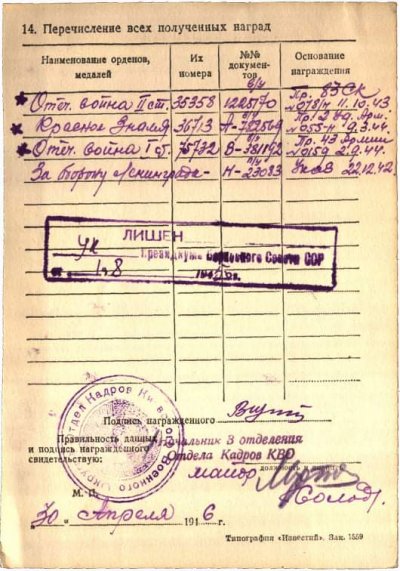 14. Перечисление всех полученных наград
Наименование орденов, медалей
Их номера
№№ документов
Основание награждения
б/ч Пр. 83СК
Отеч. война II ст. 35358 1225170 №078/н 11.10.43.
Красное Знамя 36713 А-302569 №055-н 9.3.44.
п/ч Пр. 43 Армии
Отеч. война I ст. 75732 В-381192 №0159 2.9.44.
За оборону Ленинграда - Н-23083 Указ 22.12.42.
ЛИШЕН
Ук Президиума Верховного Совета СССР
от 1.8
Подпись награжденного
Правильность данных и подпись награжденного свидетельствую:
Начальник 3 отделения
Отдела Кадров КВО
майор
должность и
М. П.
30 Апреля 1946 г.
Типография «Известий». Зак. 1559
Отдел Кадров Ки
Военного